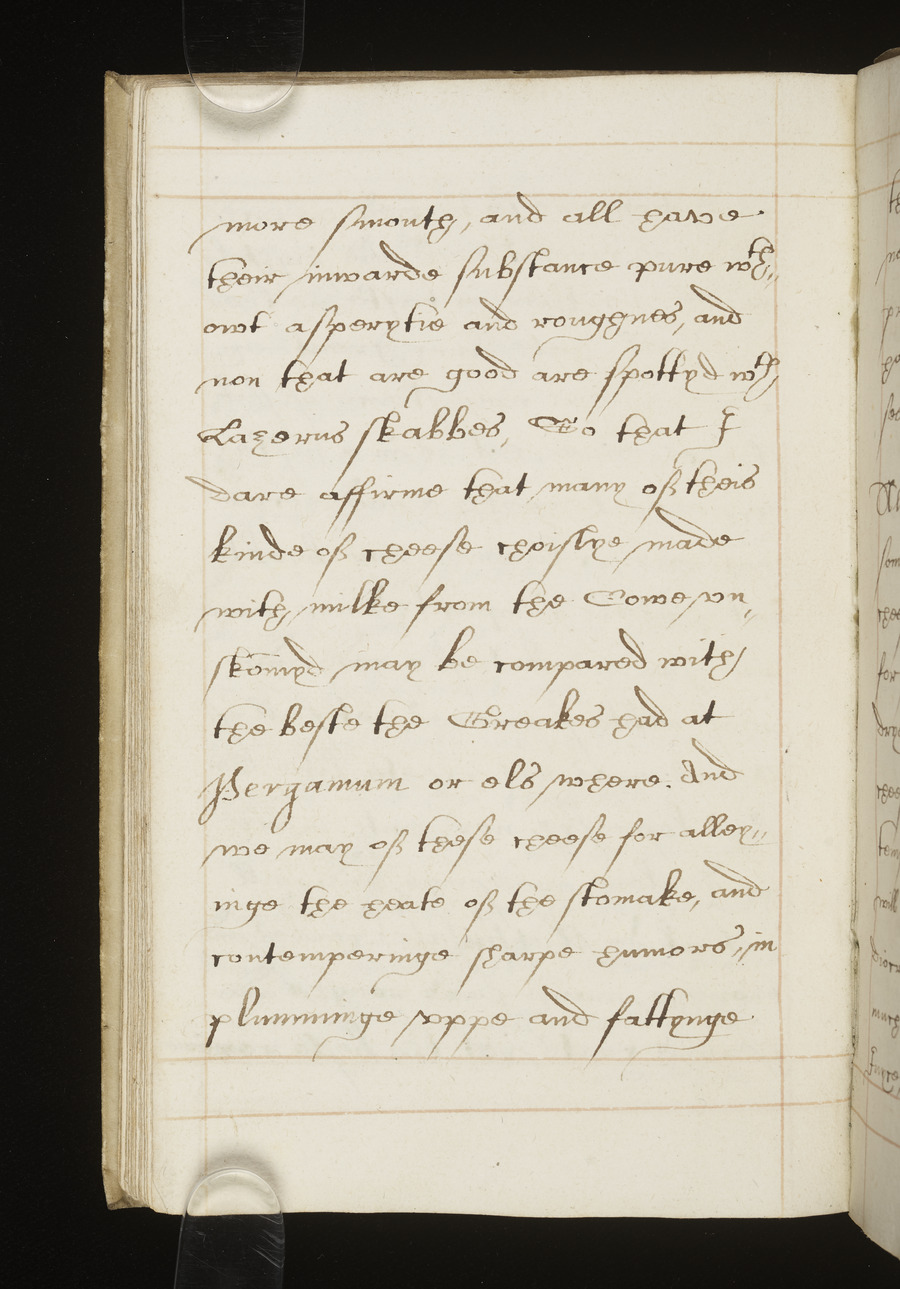 more smouth, and all have
their inwarde substance pure wth„
owt asperytie and rougghnes, and
non that are good are spottyd wth
Lazerus skabbes, So that I
dare affirme that many of theis
kinde of cheese choislye made
with milke from the Cowe vn„
skōmyd may be compared with
the beste the Greakes had at
Pergamum or els where. And
we may of these cheese for alley„
inge the heate of the stomake, and
contemperinge sharpe humors, in
plumminge vppe and fattynge